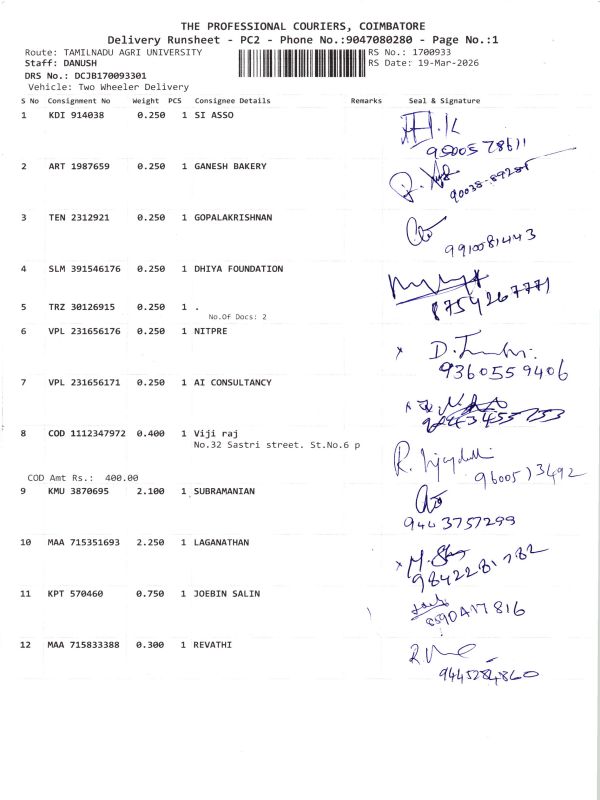 THE PROFESSIONAL COURIERS, COIMBATORE
Delivery Runsheet - PC2 - Phone No.:9047080280 - Page No.:1
Route: TAMILNADU AGRI UNIVERSITY RS No.: 1700933
Staff: DANUSH RS Date: 19-Mar-2026
DRS No.: DCJB170093301
Vehicle: Two Wheeler Delivery
S No Consignment No Weight PCS Consignee Details Remarks Seal & Signature
1 KDI 914038 0.250 1 SI ASSO
2 ART 1987659 0.250 1 GANESH BAKERY
3 TEN 2312921 0.250 1 GOPALAKRISHNAN
9910081443
4 SLM 391546176 0.250 1 DHIYA FOUNDATION
8754267771
5 TRZ 30126915 0.250 1 .
No.Of Docs: 2
6 VPL 231656176 0.250 1 NITPRE
9360559406
7 VPL 231656171 0.250 1 AI CONSULTANCY
8 COD 1112347972 0.400 1 Viji raj
No.32 Sastri street. St.No.6 p
9600573492
COD Amt Rs.: 400.00
9 KMU 3870695 2.100 1 SUBRAMANIAN
9443757299
10 MAA 715351693 2.250 1 LAGANATHAN
9842281782
11 KPT 570460 0.750 1 JOEBIN SALIN
8590417816
12 MAA 715833388 0.300 1 REVATHI